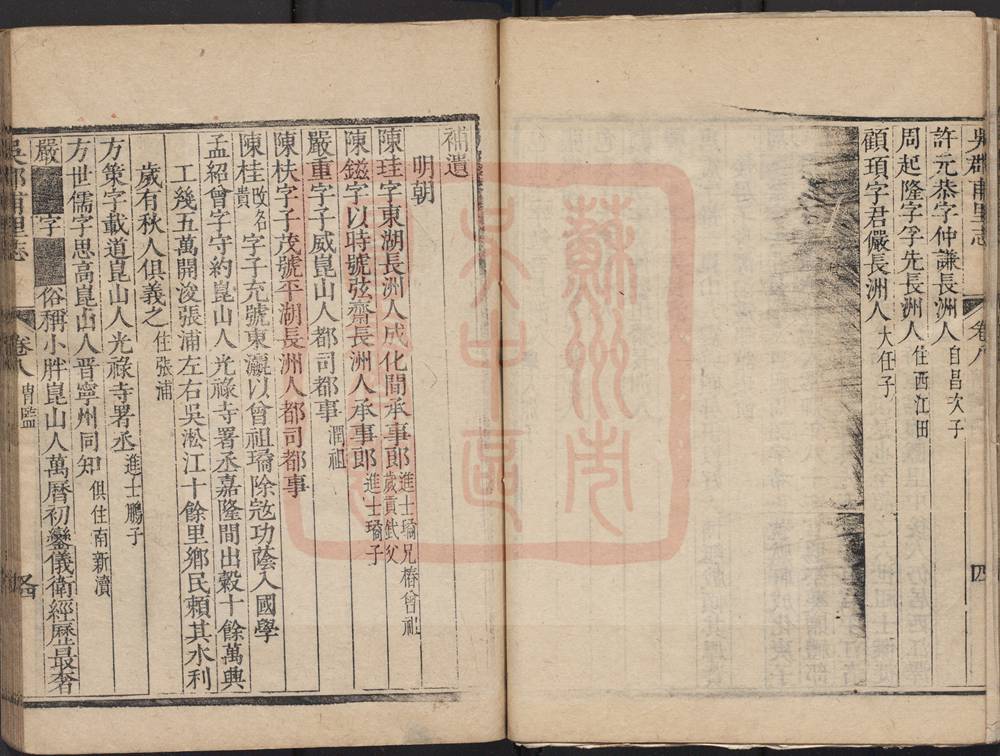 吳郡甫里志 卷八 四
許元恭字仲謙長洲人自昌次子
周起隆字孚先長洲人住西江田
顧頊字君儼長洲人大任子
補遺
明朝
陳珪字東湖長洲人成化間承事郎進士璚兄椿曾祖歲貢欽父
陳鎡字以時號弦齋長洲人承事郎進士璚子
嚴重字子威崑山人都司都事潤祖
陳扶字子茂號平湖長洲人都司都事
陳桂改名貴字子充號東瀛以曾祖璚除冦功蔭入國學
孟紹曾字守約崑山人光祿寺署丞嘉隆間出穀十餘萬典
工幾五萬開浚張浦左右吳淞江十餘里鄉民賴其水利
歲有秋人俱義之住張浦
方策字載道崑山人光祿寺署丞進士鵬子
方世儒字思高崑山人晋寧州同知俱住南新瀆
嚴字俗稱小胖崑山人萬曆初鑾儀衛經歷最奢
吳郡甫里志 卷八 冑監
蘇州市吴中區